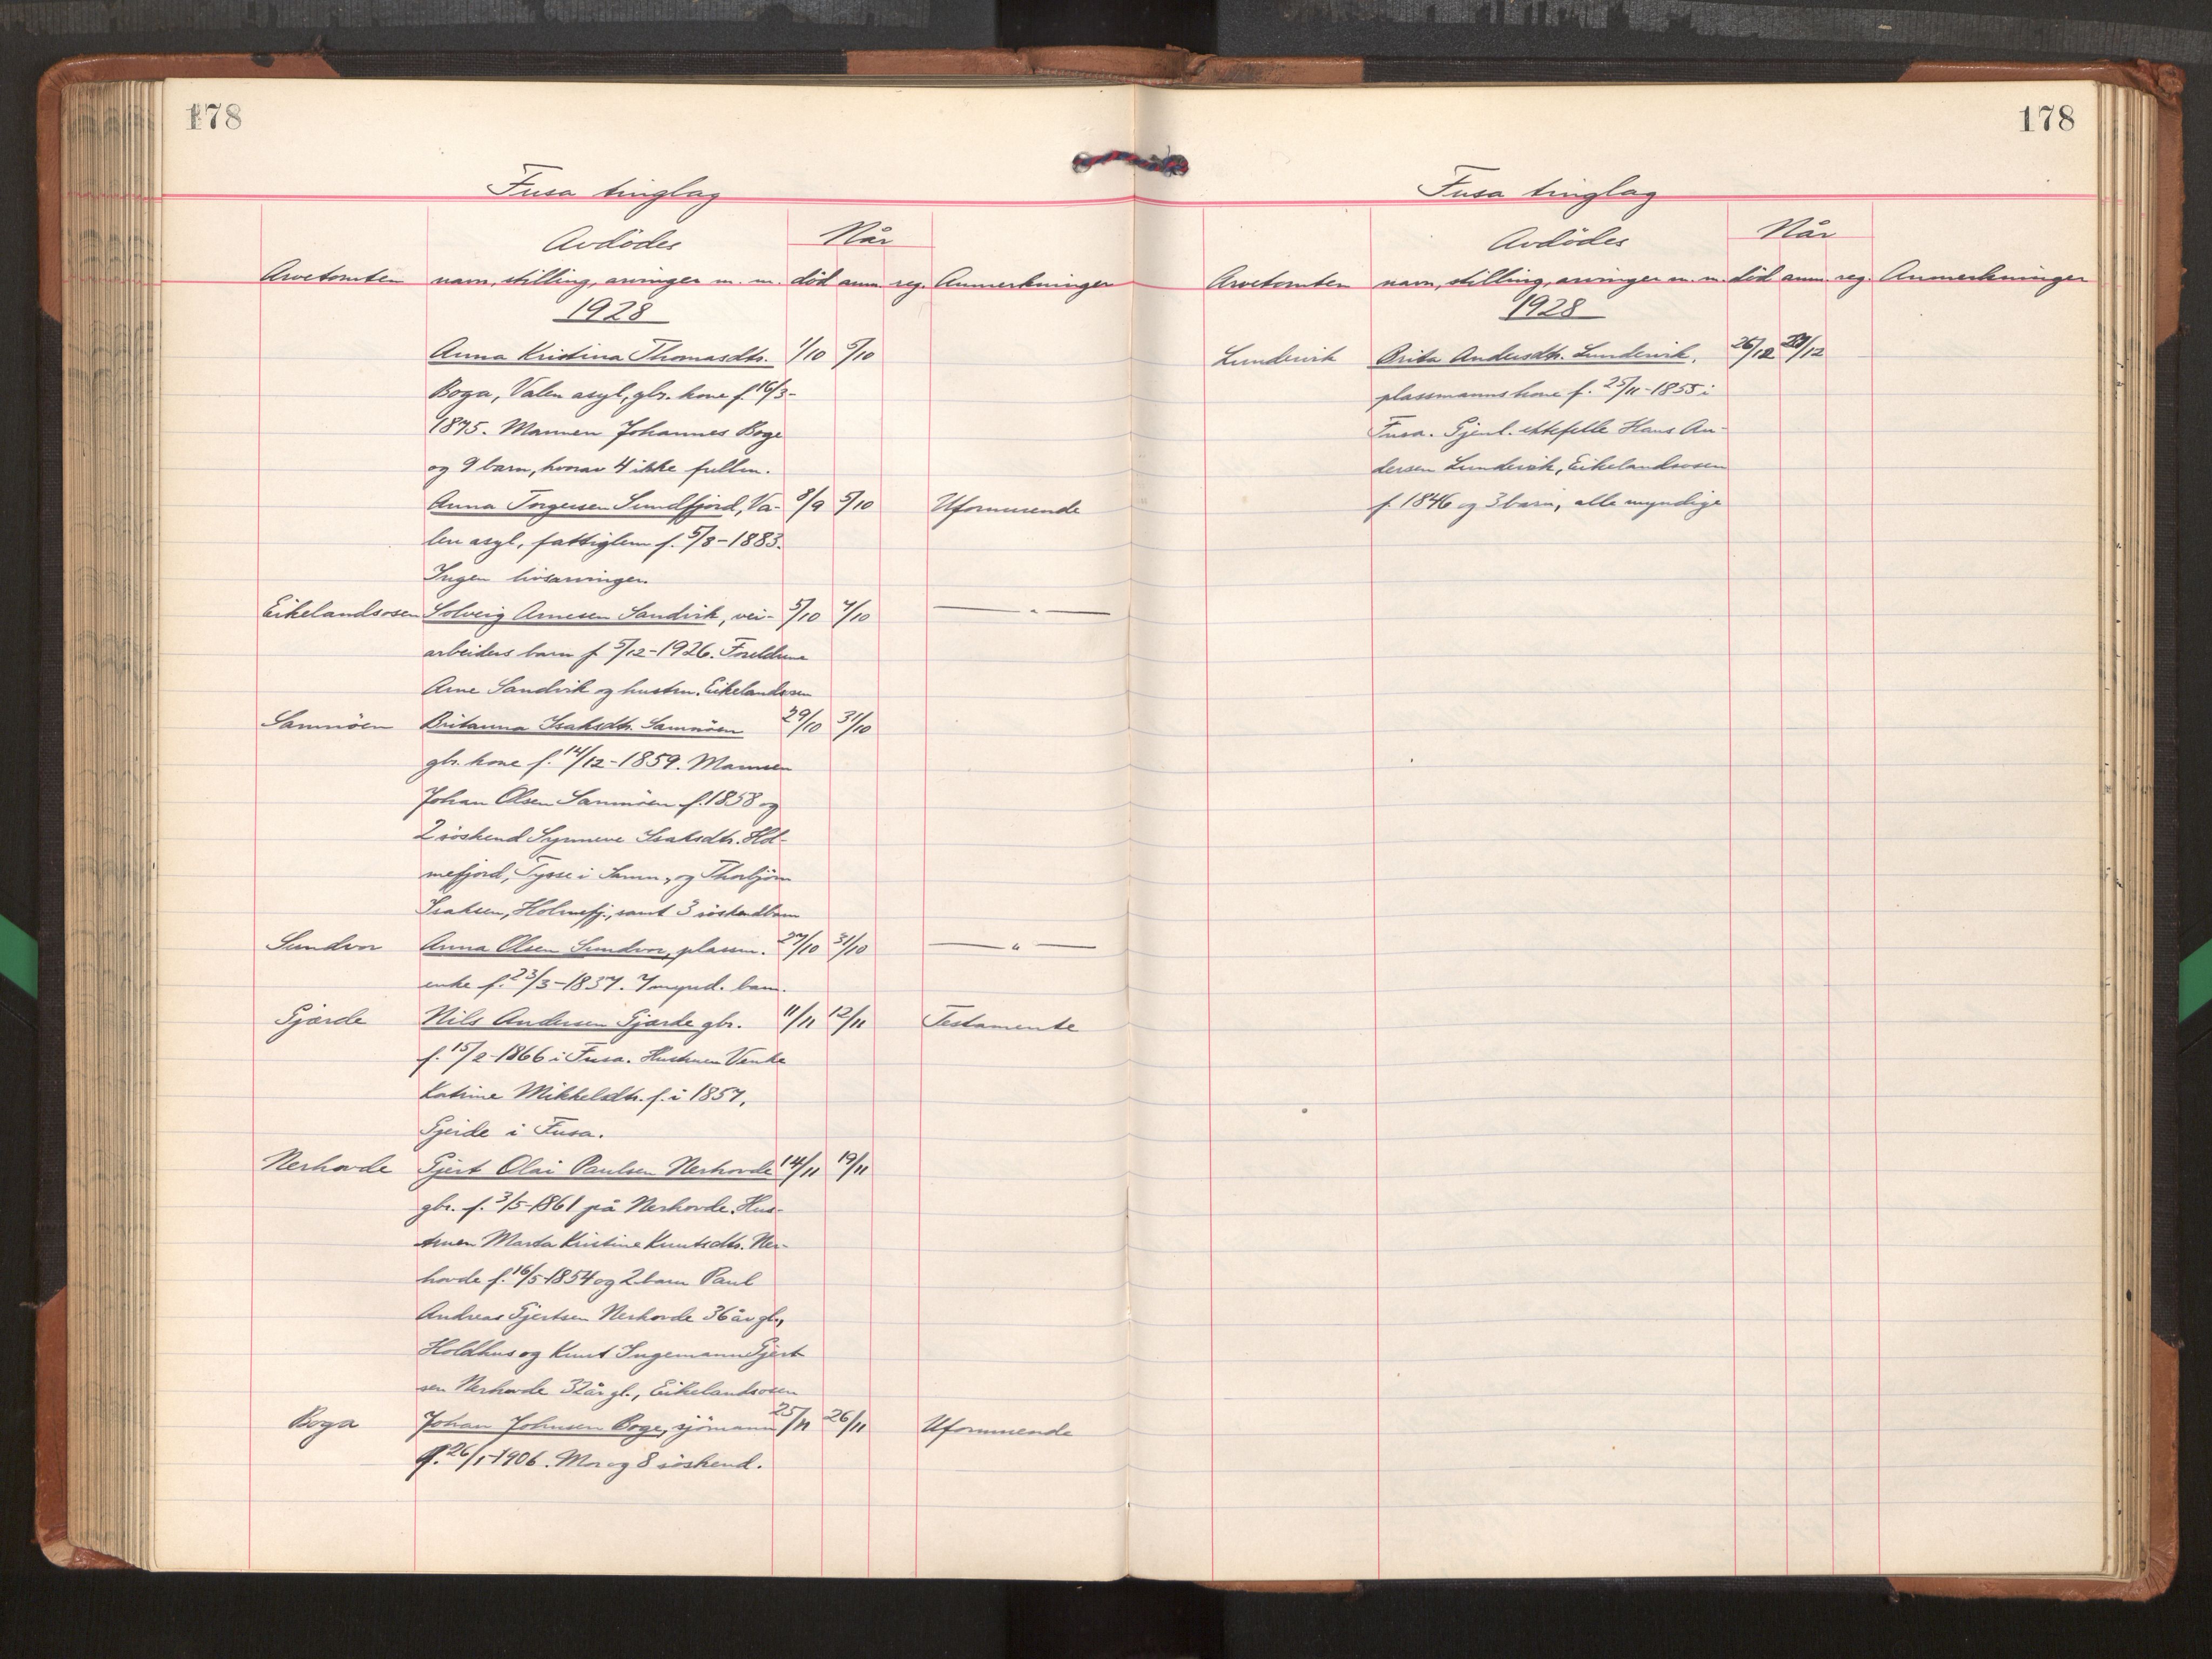 178
Fusa tinglag
Avdödes
Når
Arvetomten navn, stilling, arvinger m. m. död anm. reg. Anmerkninger
1928
Anna Kristina Thomasdtr. 1/10 5/10
Boga, Valen asyl, gbr. kone f. 16/3-
1875. Mannen Johannes Boge
og 9 barn, hvorav 4 ikke fullm.
Anna Torgersen Sundfjord, Va- 8/9 5/10 Uformuende
len asyl, fattiglem f. 5/8-1883.
Ingen livsarvinger.
Eikelandsosen Solveig Arnesen Sandvik, vei- 5/10 7/10 — " —
arbeiders barn f 5/12-1926. Foreldrene
Arne Sandvik og hustru, Eikelandsosen
Samnöen Britanna Isaksdtr. Samnöen 29/10 31/10
gbr. kone f. 14/12-1859. Mannen
Johan Olsen Samnöen f. 1858 og
2 söskend Synneve Isaksdtr. Hol-
mefjord, Tysse i Samn., og Thorbjörn
Isaksen, Holmefj., samt 3 söskendbarn
Sundvor Anna Olsen Sundvor, plassm. 27/10 31/10 — " —
enke f. 23/3-1837. 7 mynd. barn.
Gjærde Nils Andersen Gjærde gbr. 11/11 12/11 Testamente
f. 15/2-1866 i Fusa. Hustruen Venke
Katrine Mikkelsdtr. f. i 1857,
Gjerde i Fusa.
Nerhovde Gjert Olai Paulsen Nerhovde 14/11 19/11
gbr. f. 3/5-1861 på Nerhovde. Hus-
truen Marta Kristine Knutsdtr. Ner-
hovde f. 16/5-1854 og 2 barn Paul
Andreas Gjertsen Nerhovde 36 år gl.,
Holdhus og Knut Ingemann Gjert
sen Nerhovde 32 år gl., Eikelandsosen
Boga Johan Johnsen Boge, sjömann 25/11 26/11 Uformuende
f. 26/1-1906. Mor og 8 söskend.
178
Fusa tinglag
Avdödes
Når
Arvetomten navn, stilling, arvinger m. m. död anm. reg. Anmerkninger
1928
Lundervik Brita Andersdtr. Lundervik, 26/12 29/12
plassmannskone f. 25/11-1855 i
Fusa. Gjenl. ektefelle Hans An-
dersen Lundervik, Eikelandsosen
f. 1846 og 3 barn, alle myndige